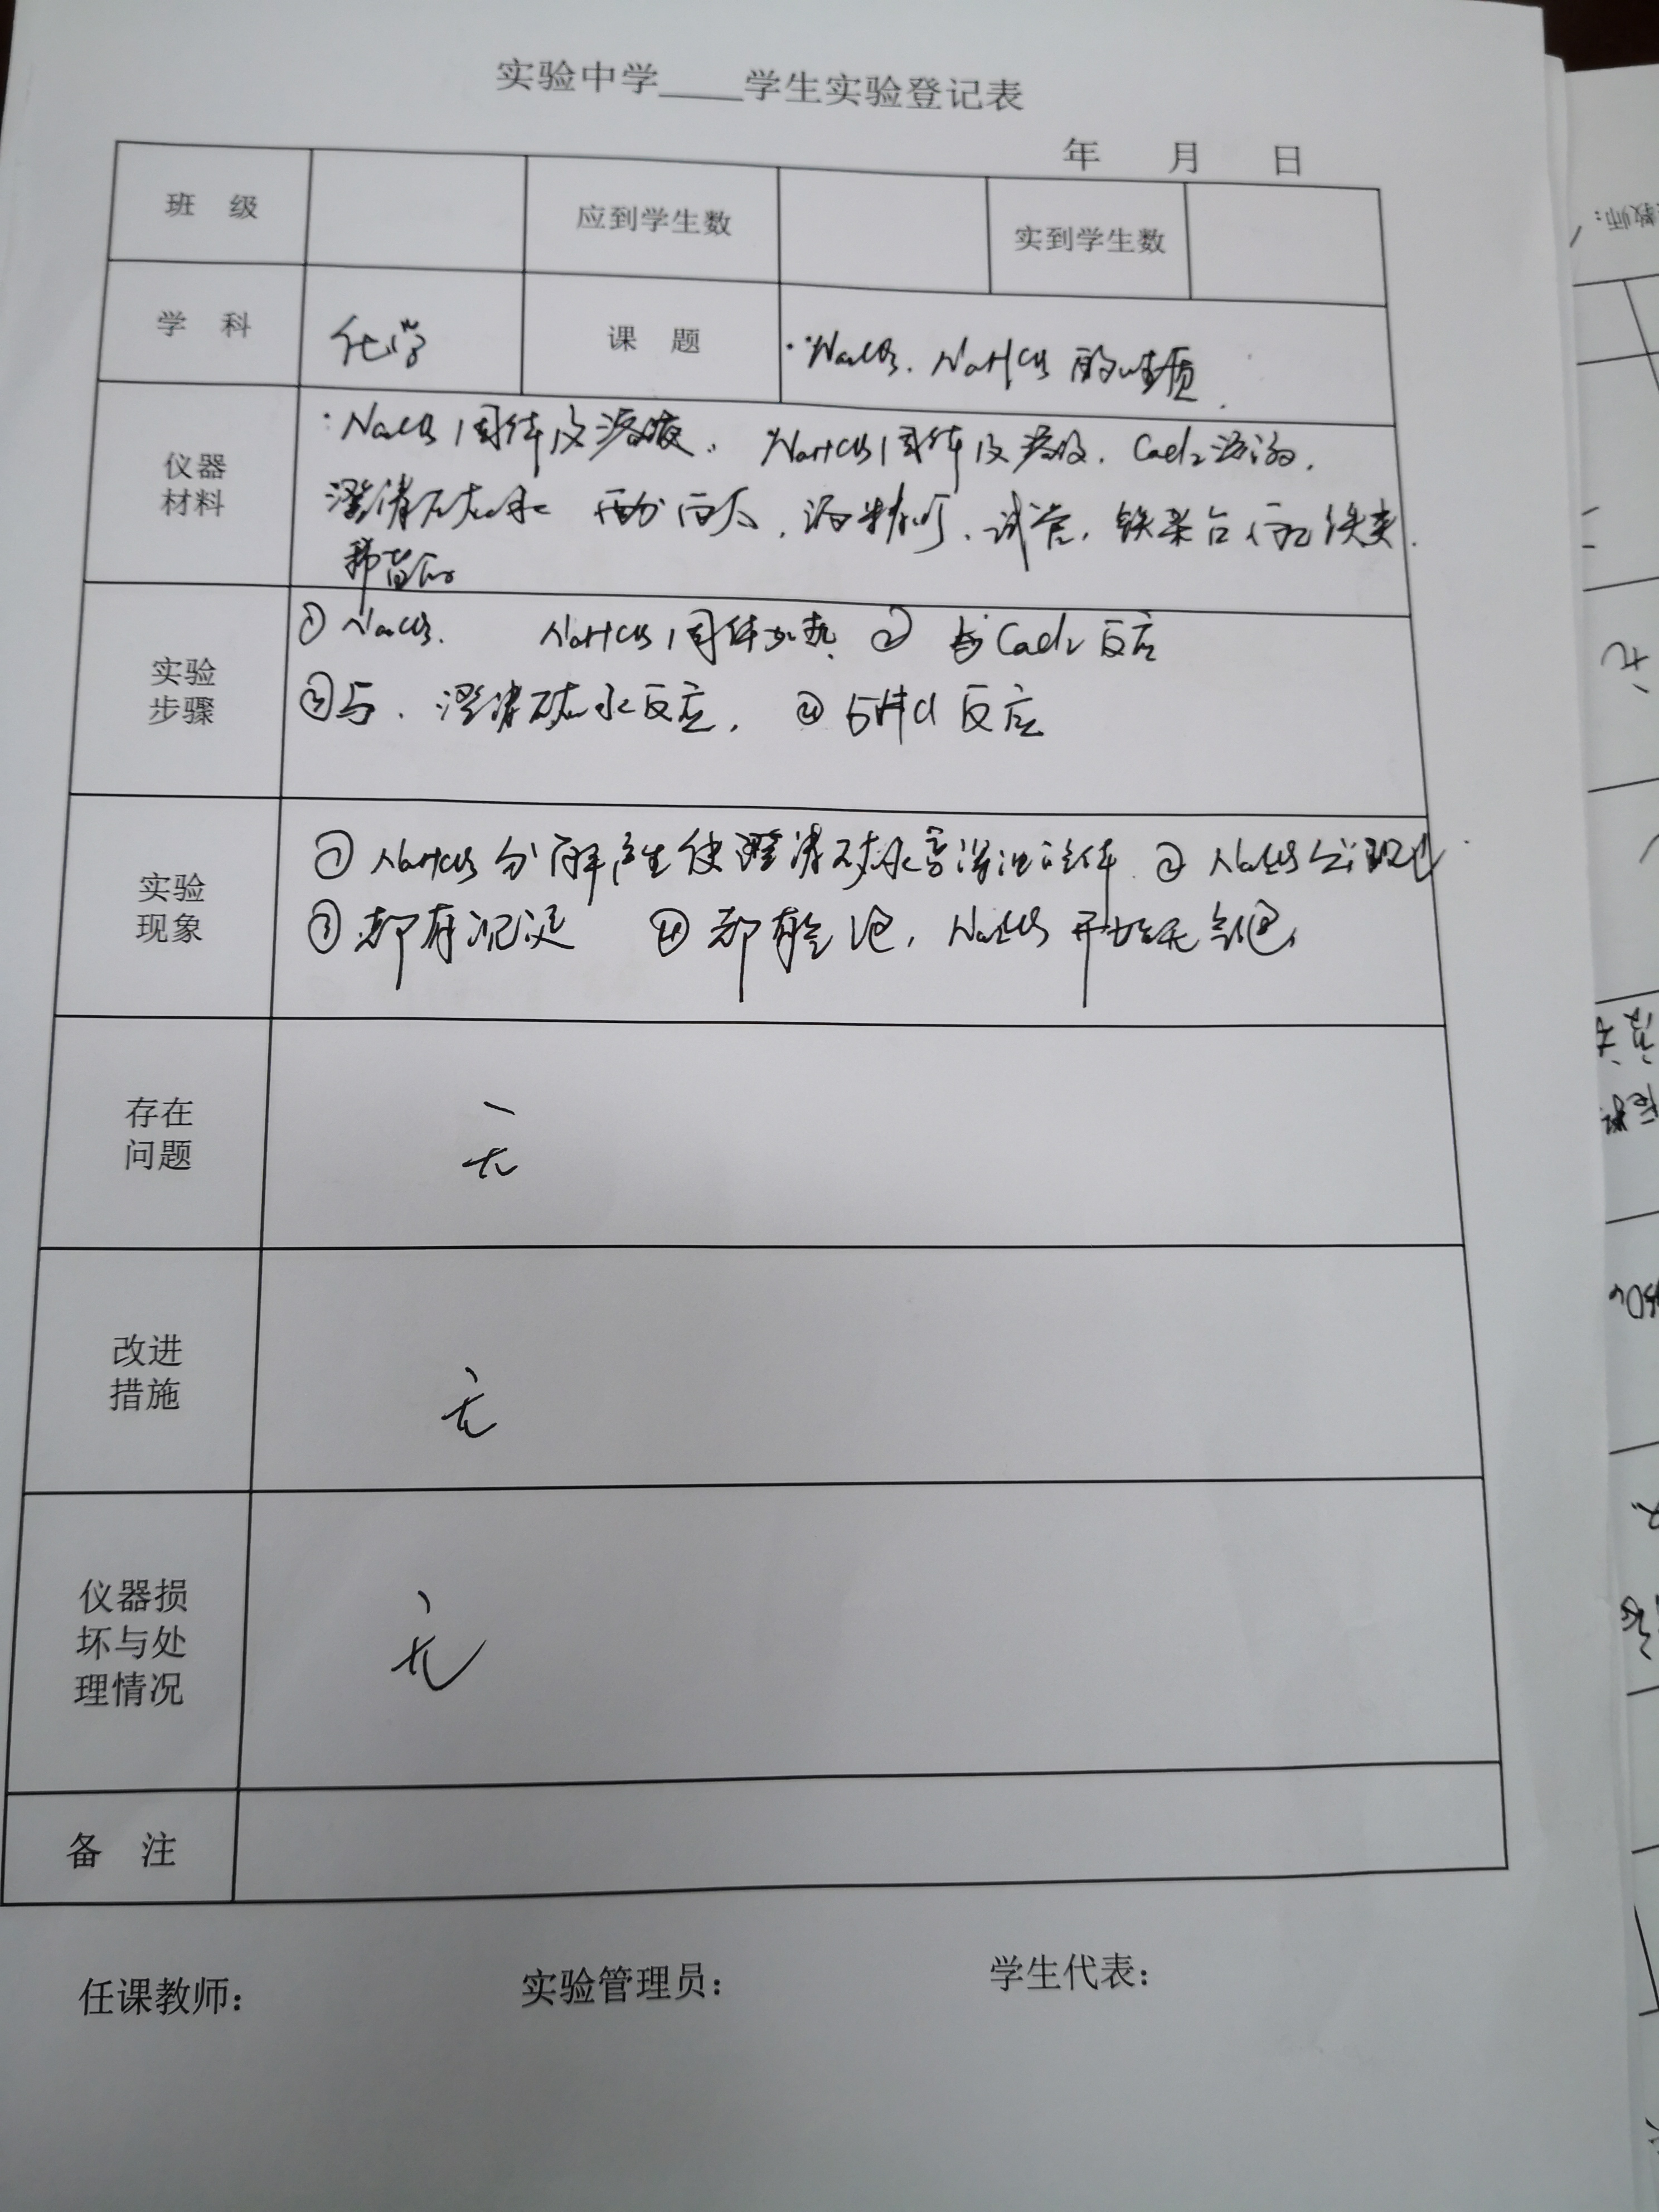 实验中学____学生实验登记表
年 月 日
班 级 应到学生数 实到学生数
学 科 化学 课 题 Na₂CO₃、NaHCO₃的性质
仪器材料 Na₂CO₃固体及溶液、NaHCO₃固体及溶液、CaCl₂溶液、
澄清石灰水 酚酞、酒精灯、试管、铁架台(带铁夹)
稀盐酸
实验步骤 ① Na₂CO₃、NaHCO₃固体加热 ② 与CaCl₂反应
③与澄清石灰水反应、④与HCl反应
实验现象 ① NaHCO₃分解产生使澄清石灰水变浑浊气体 ② Na₂CO₃
③都有沉淀 ④都有气泡,Na₂CO₃开始无气泡
存在问题 无
改进措施 无
仪器损坏与处理情况 无
备 注
任课教师: 实验管理员: 学生代表:
教师: